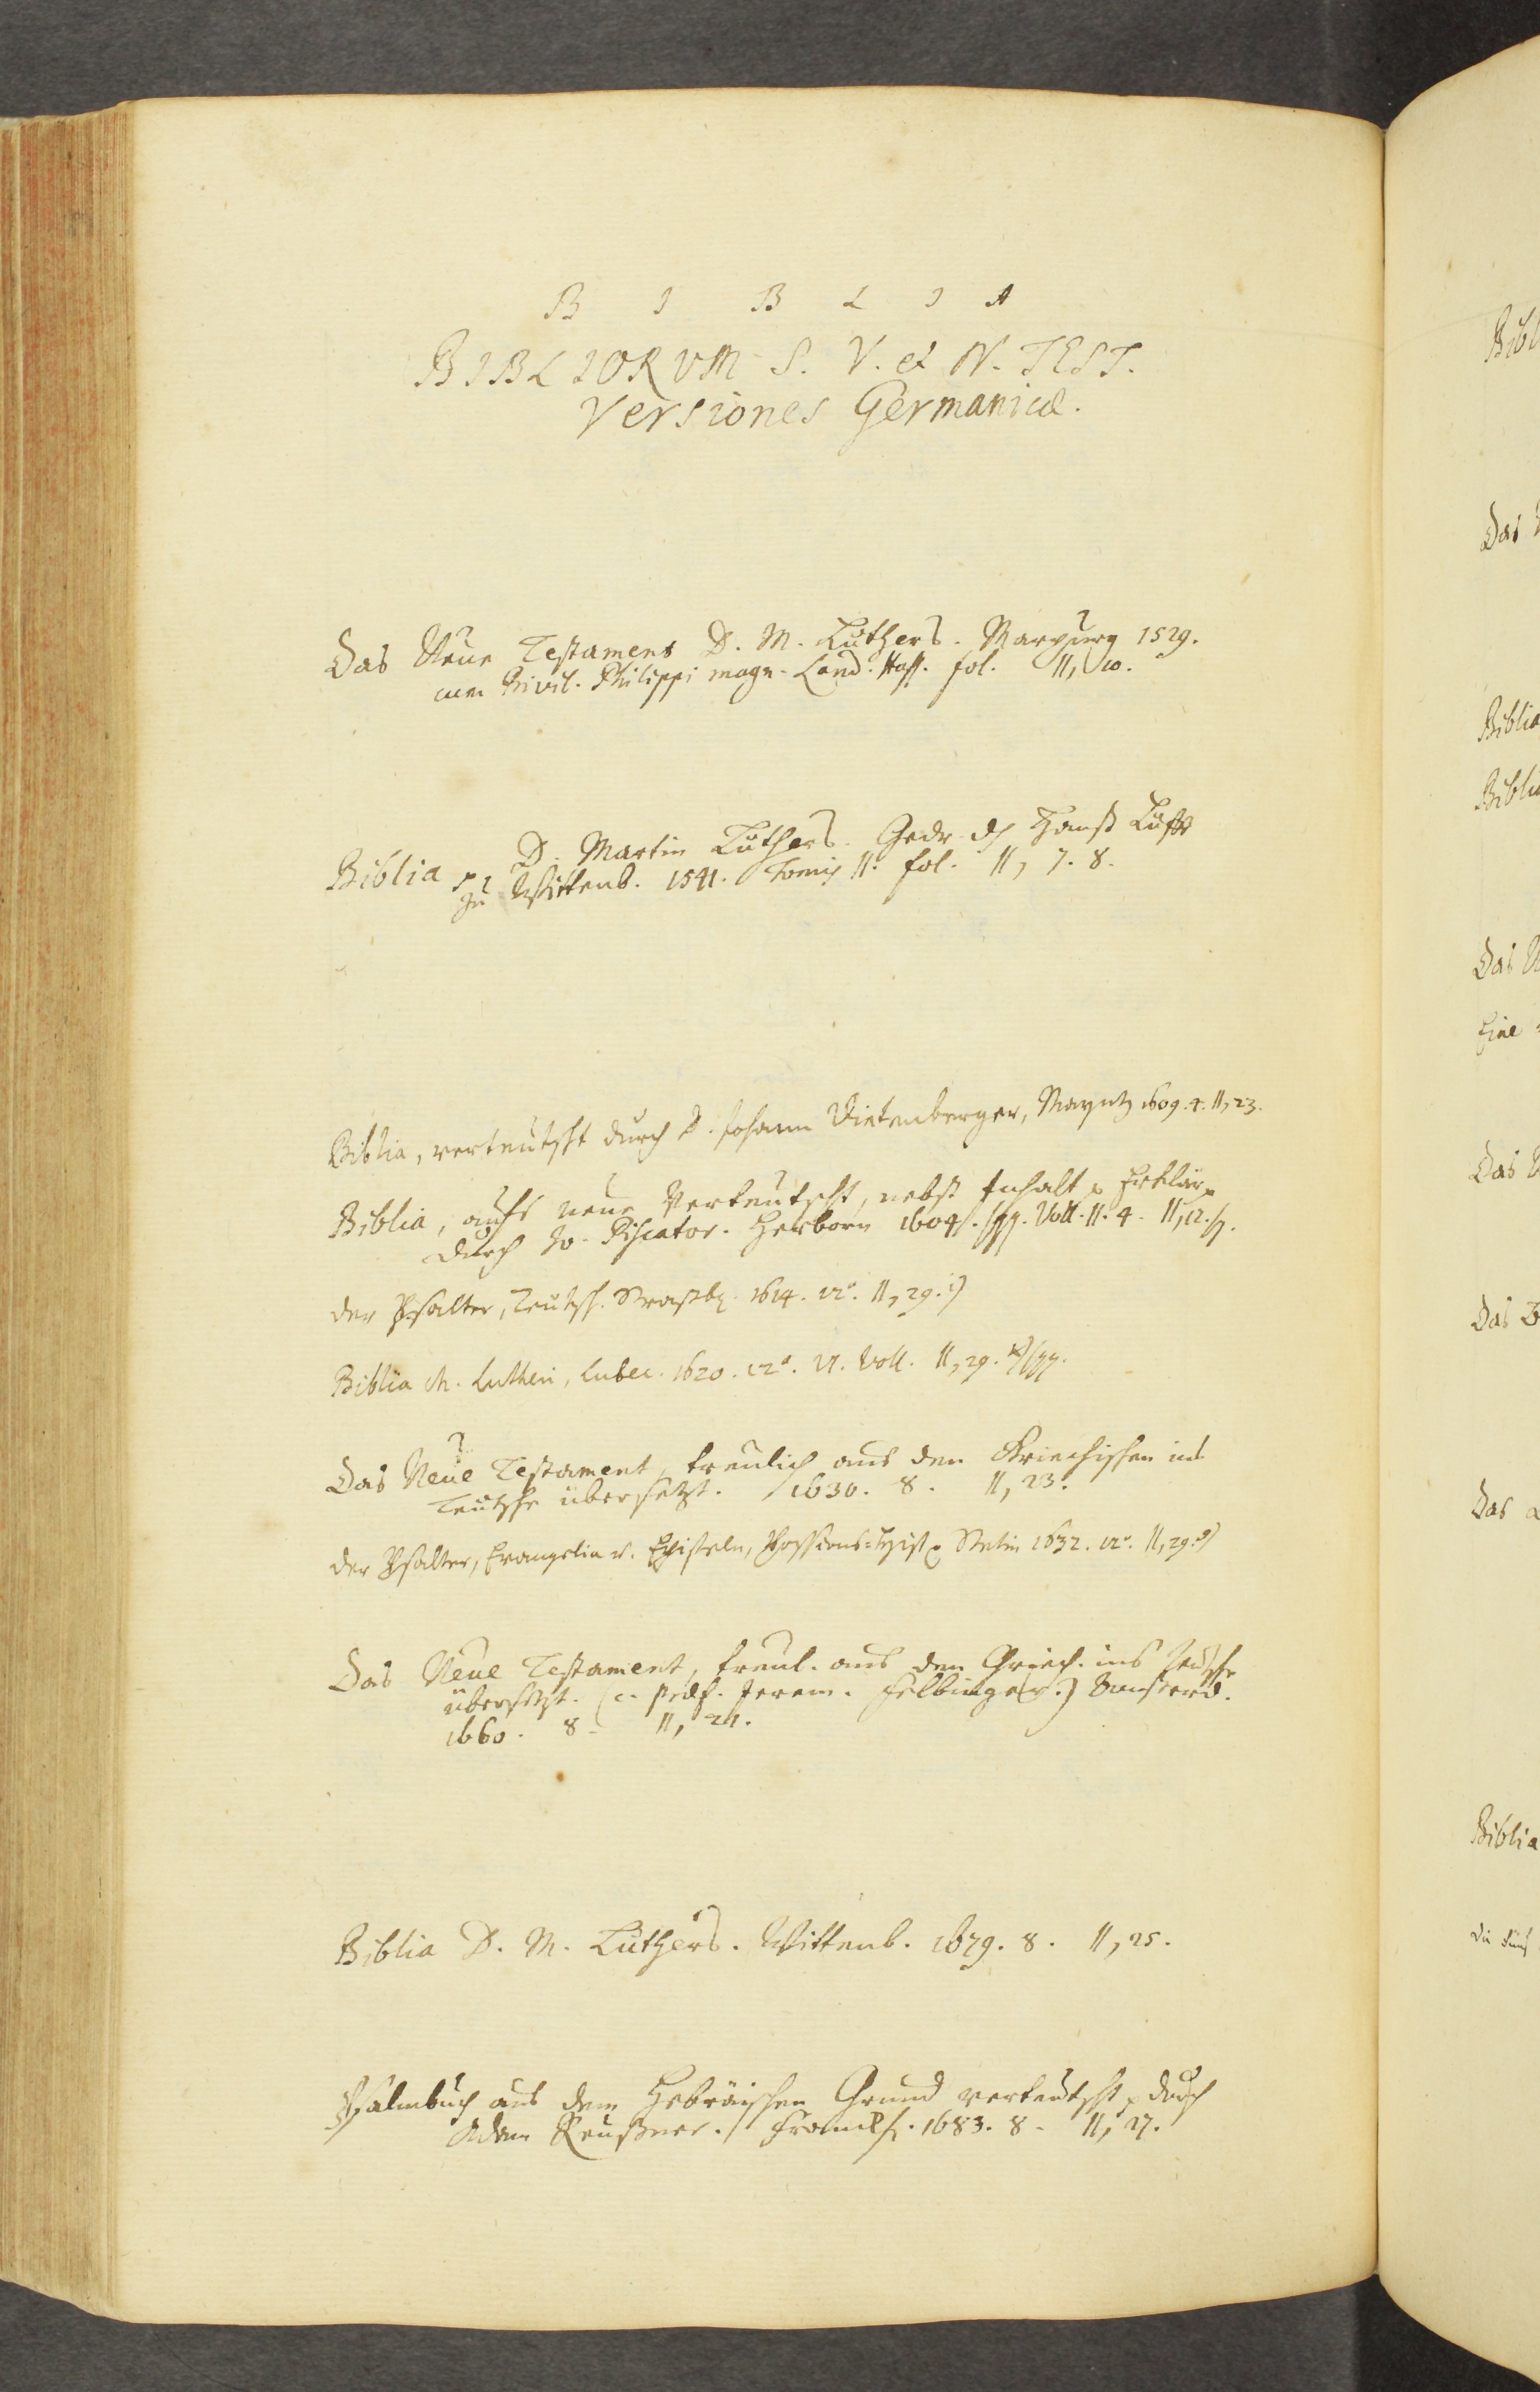 B I B L I A
BIBLIORVM S. V. et N. TEST.
Versiones Germanicæ.
Das Neue Testament D. M. Luthers. Marpurg 1529.
cum Privil. Philippi magn. Land. Hass. fol. II, 10.
D. Martin Luthers. Gedr. d. Hanß Lufft
Biblia
zu Wittenb. 1541. Tomis II. fol. II, 7. 8.
Biblia, verteutscht durch D. Johann Dietenberger, Mayntz 1609. 4. II, 23.
Biblia, aufs neue Verteutscht, nebst Inhalt Erklär.
durch Jo. Piscator. Herborn 1604. sqq. Voll. II. 4. II, 12. sq.
Der Psalter, Teutsch. Straßb. 1614. 12°. II, 29. i)
Biblia M. Lutheri, Lubec. 1620. 12°. VI. Voll. II, 29. sqq.
Das Neue Testament, treulich aus den Griechischen ins
Teutsche übersetzt. 1630. 8. II, 23.
Der Psalter, Evangelia u. Episteln, Passions-Hist. Stetin 1632. 12°. II, 29.
Das Neue Testament, treul. aus den Griech. ins Teutsche
übersetzt. (c. præf. Jerem. Felbinger.) Amsterd.
1660. 8. II, 24.
Biblia D. M. Luthers. Wittenb. 1679. 8. II, 25.
Psalmbuch aus dem Hebräischen Grund verteutscht durch
Adam Reußner. Franckf. 1683. 8. II, 27.
Bibl
Das
Biblia
Bibli
Das
Eine
Das
Das
Das
Biblia
Die fünf